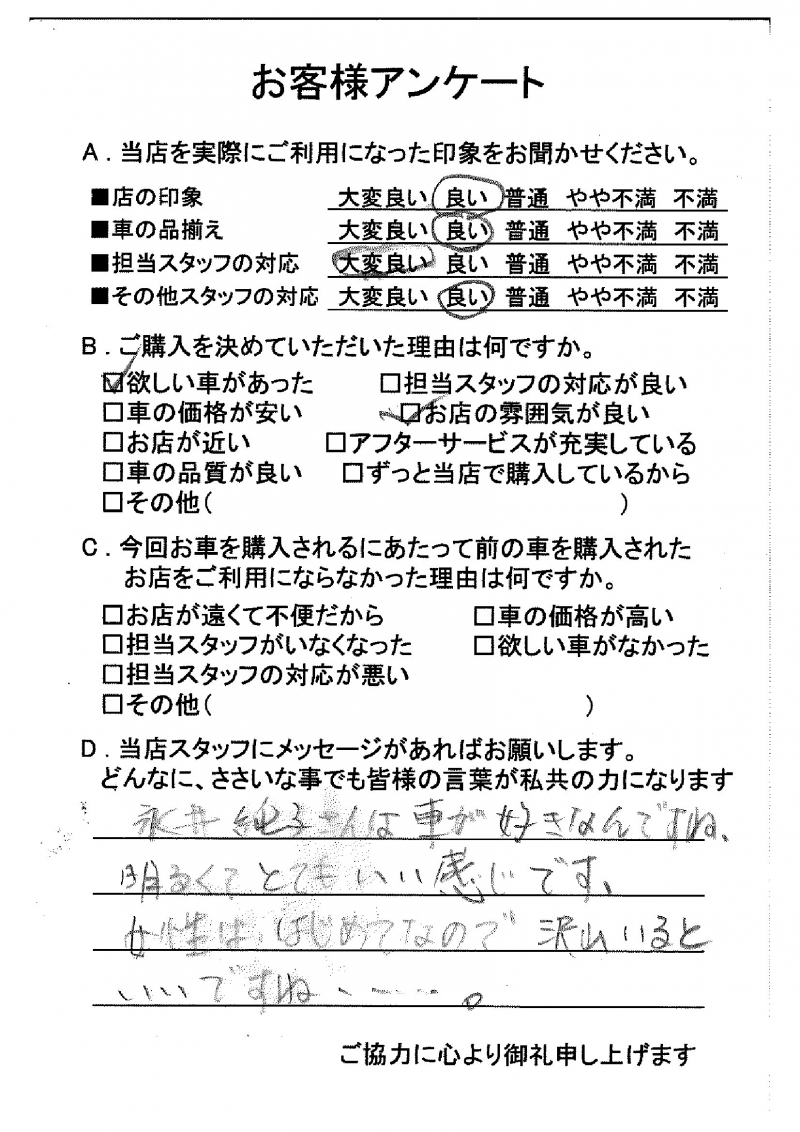 お客様アンケート
A．当店を実際にご利用になった印象をお聞かせください。
■店の印象 大変良い 良い 普通 やや不満 不満
■車の品揃え 大変良い 良い 普通 やや不満 不満
■担当スタッフの対応 大変良い 良い 普通 やや不満 不満
■その他スタッフの対応 大変良い 良い 普通 やや不満 不満
B．ご購入を決めていただいた理由は何ですか。
☑欲しい車があった □担当スタッフの対応が良い
□車の価格が安い ☑お店の雰囲気が良い
□お店が近い □アフターサービスが充実している
□車の品質が良い □ずっと当店で購入しているから
□その他( )
C．今回お車を購入されるにあたって前の車を購入された
お店をご利用にならなかった理由は何ですか。
□お店が遠くて不便だから □車の価格が高い
□担当スタッフがいなくなった □欲しい車がなかった
□担当スタッフの対応が悪い
□その他( )
D．当店スタッフにメッセージがあればお願いします。
どんなに、ささいな事でも皆様の言葉が私共の力になります
永井純子さんは車が好きなんですね、
明るくてとてもいい感じです、
女性は、はじめてなので沢山いると
いいですね、‥‥‥。
ご協力に心より御礼申し上げます